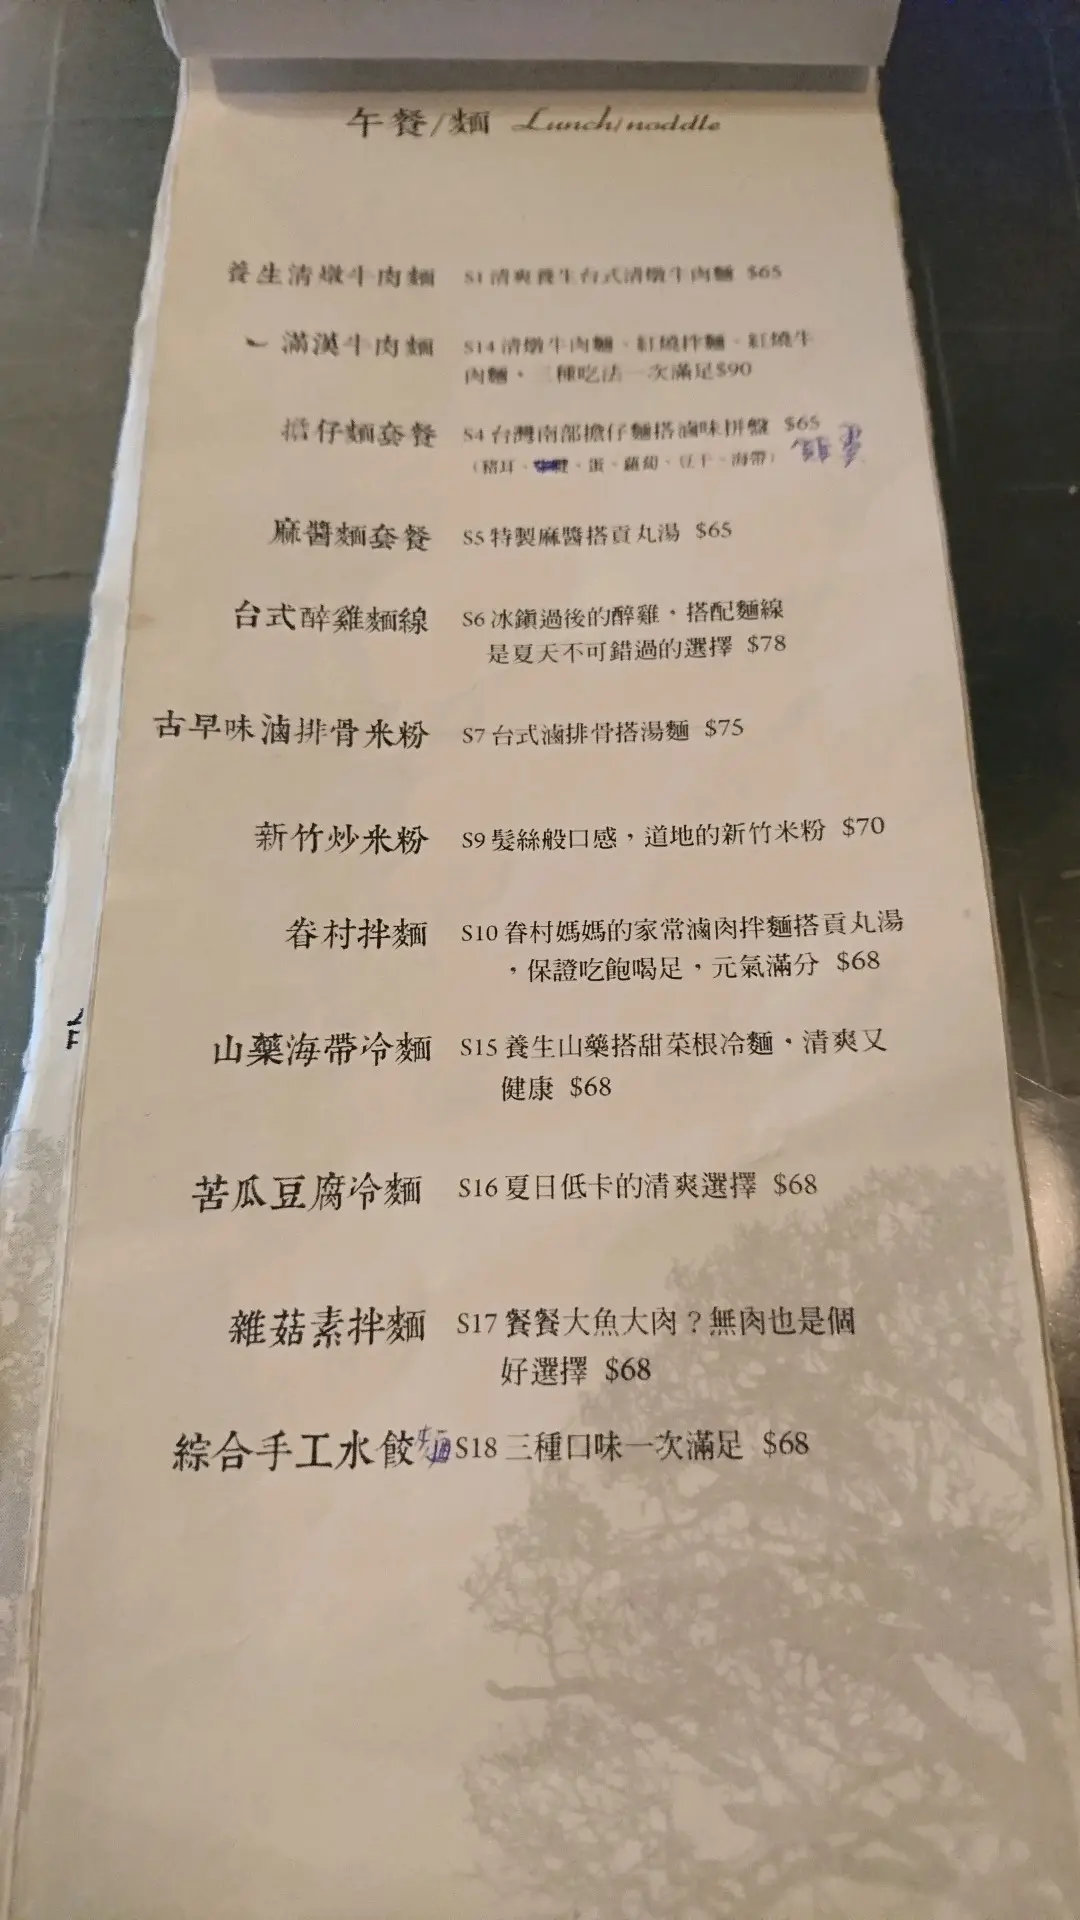 午餐/麵 Lunch/noddle
養生清燉牛肉麵 S1 清爽養生台式清燉牛肉麵 $65
滿漢牛肉麵 S14 清燉牛肉麵、紅燒拌麵、紅燒牛
肉麵，三種吃法一次滿足$90
擔仔麵套餐 S4 台灣南部擔仔麵搭滷味拼盤 $65
（豬耳、牛腱、蛋、蘿蔔、豆干、海帶）
麻醬麵套餐 S5 特製麻醬搭貢丸湯 $65
台式醉雞麵線 S6 冰鎮過後的醉雞，搭配麵線
是夏天不可錯過的選擇 $78
古早味滷排骨米粉 S7 台式滷排骨搭湯麵 $75
新竹炒米粉 S9 髮絲般口感，道地的新竹米粉 $70
眷村拌麵 S10 眷村媽媽的家常滷肉拌麵搭貢丸湯
，保證吃飽喝足，元氣滿分 $68
山藥海帶冷麵 S15 養生山藥搭甜菜根冷麵，清爽又
健康 $68
苦瓜豆腐冷麵 S16 夏日低卡的清爽選擇 $68
雜菇素拌麵 S17 餐餐大魚大肉？無肉也是個
好選擇 $68
綜合手工水餃麵 S18 三種口味一次滿足 $68